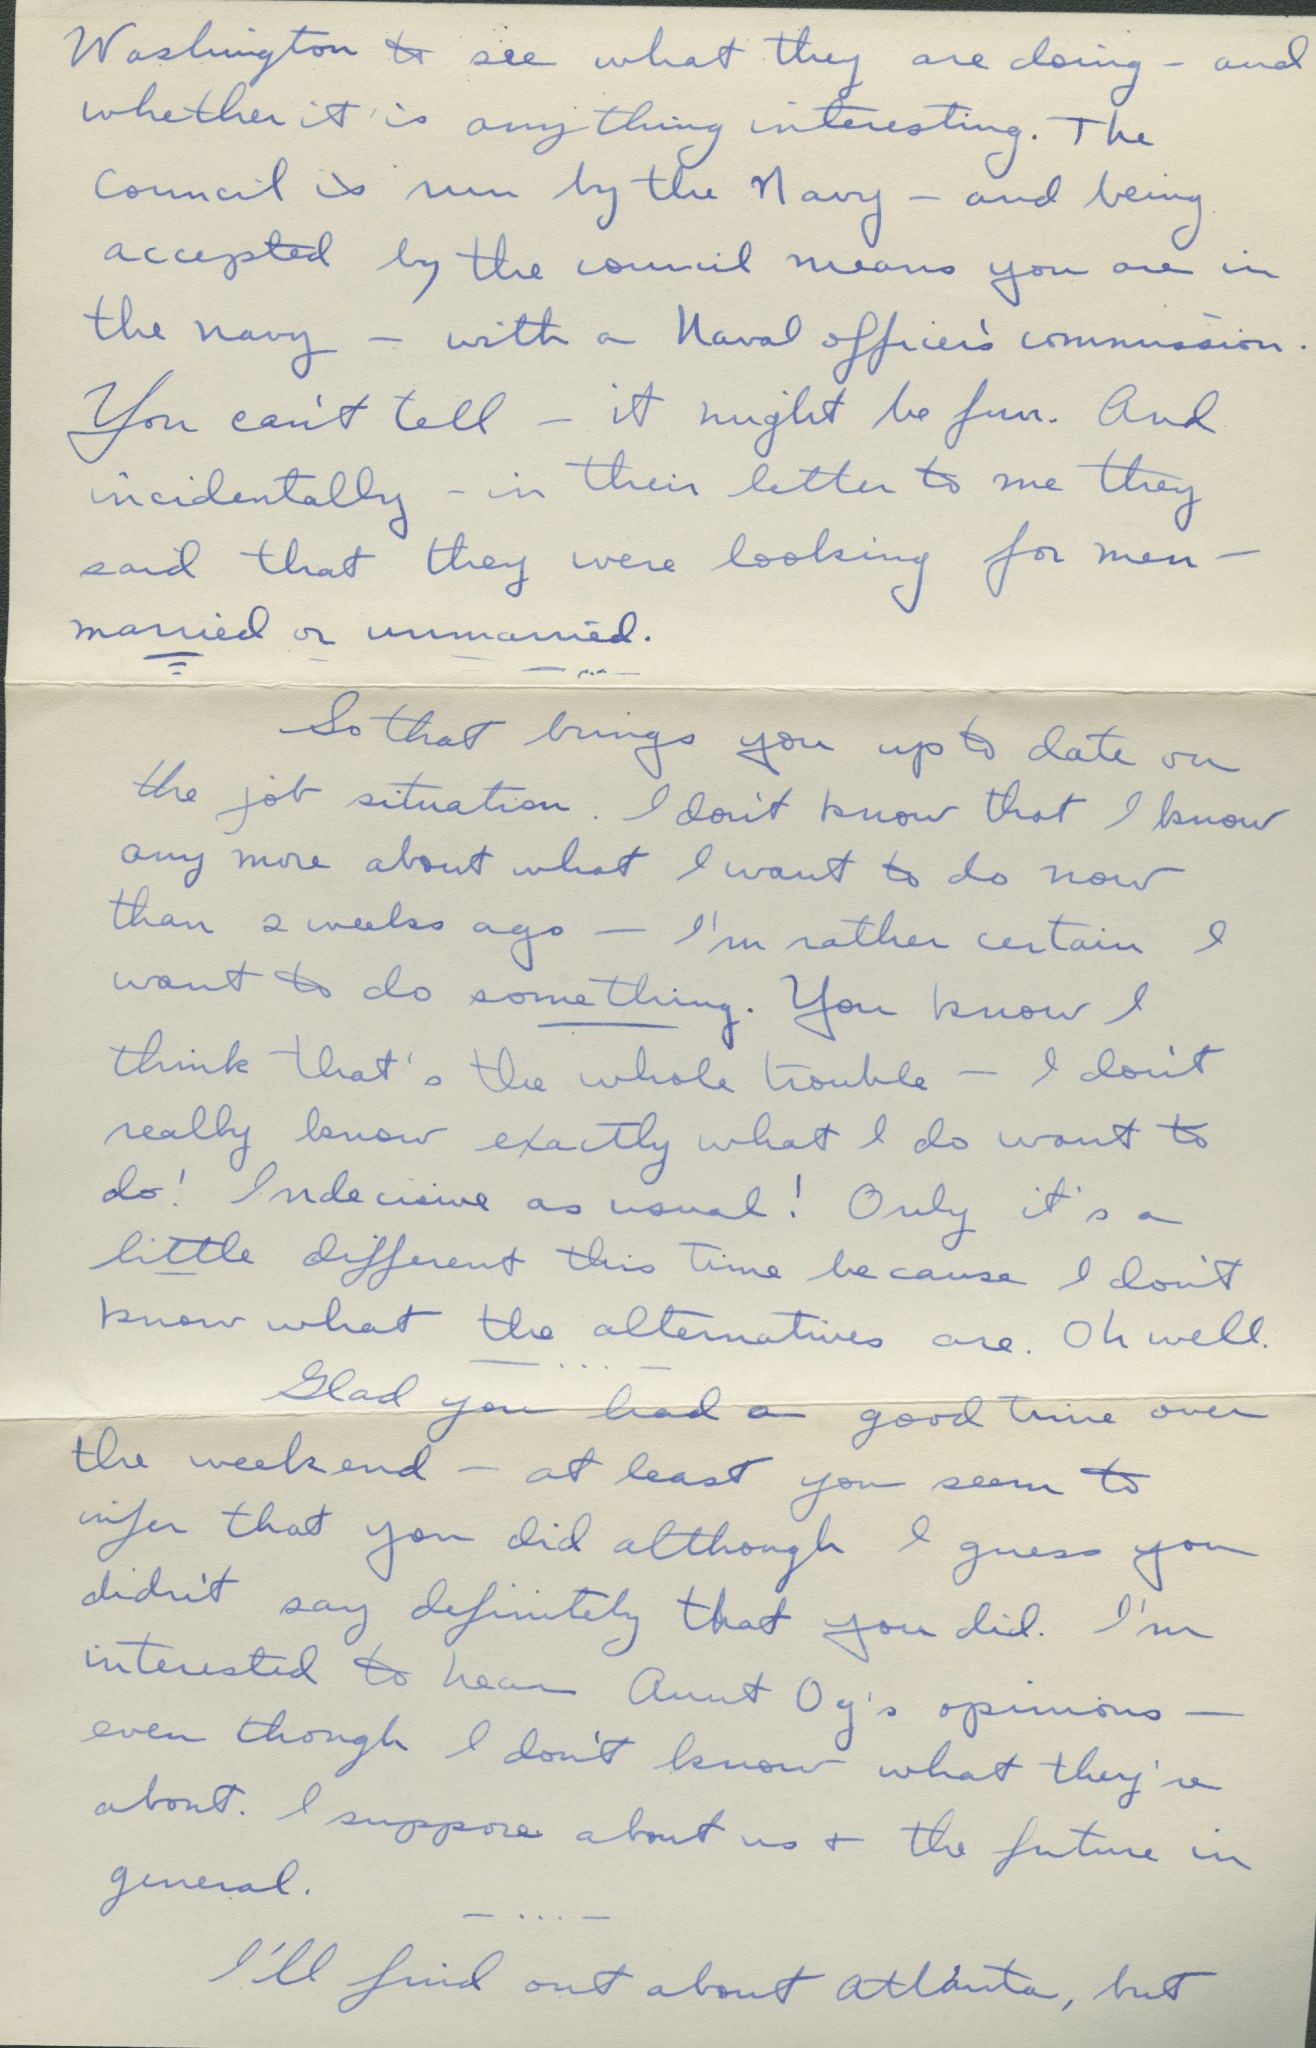 Washington to see what they are doing - and
whether it is anything interesting. The
Council is run by the Navy - and being
accepted by the council means you are in
the navy - with a Naval officer's commission.
You can't tell - it might be fun. And
incidentally - in their letter to me they
said that they were looking for men -
married or unmarried.
So that brings you up to date on
the job situation. I don't know that I know
any more about what I want to do now
than 2 weeks ago - I'm rather certain I
want to do something. You know I
think that's the whole trouble - I don't
really know exactly what I do want to
do! Indecisive as usual! Only it's a
little different this time because I don't
know what the alternatives are. Oh well.
- ... -
Glad you had a good time over
the weekend - at least you seem to
infer that you did although I guess you
didn't say definitely that you did. I'm
interested to hear Aunt Og's opinions -
even though I don't know what they're
about. I suppose about us + the future in
general.
- ... -
I'll find out about Atlanta, but